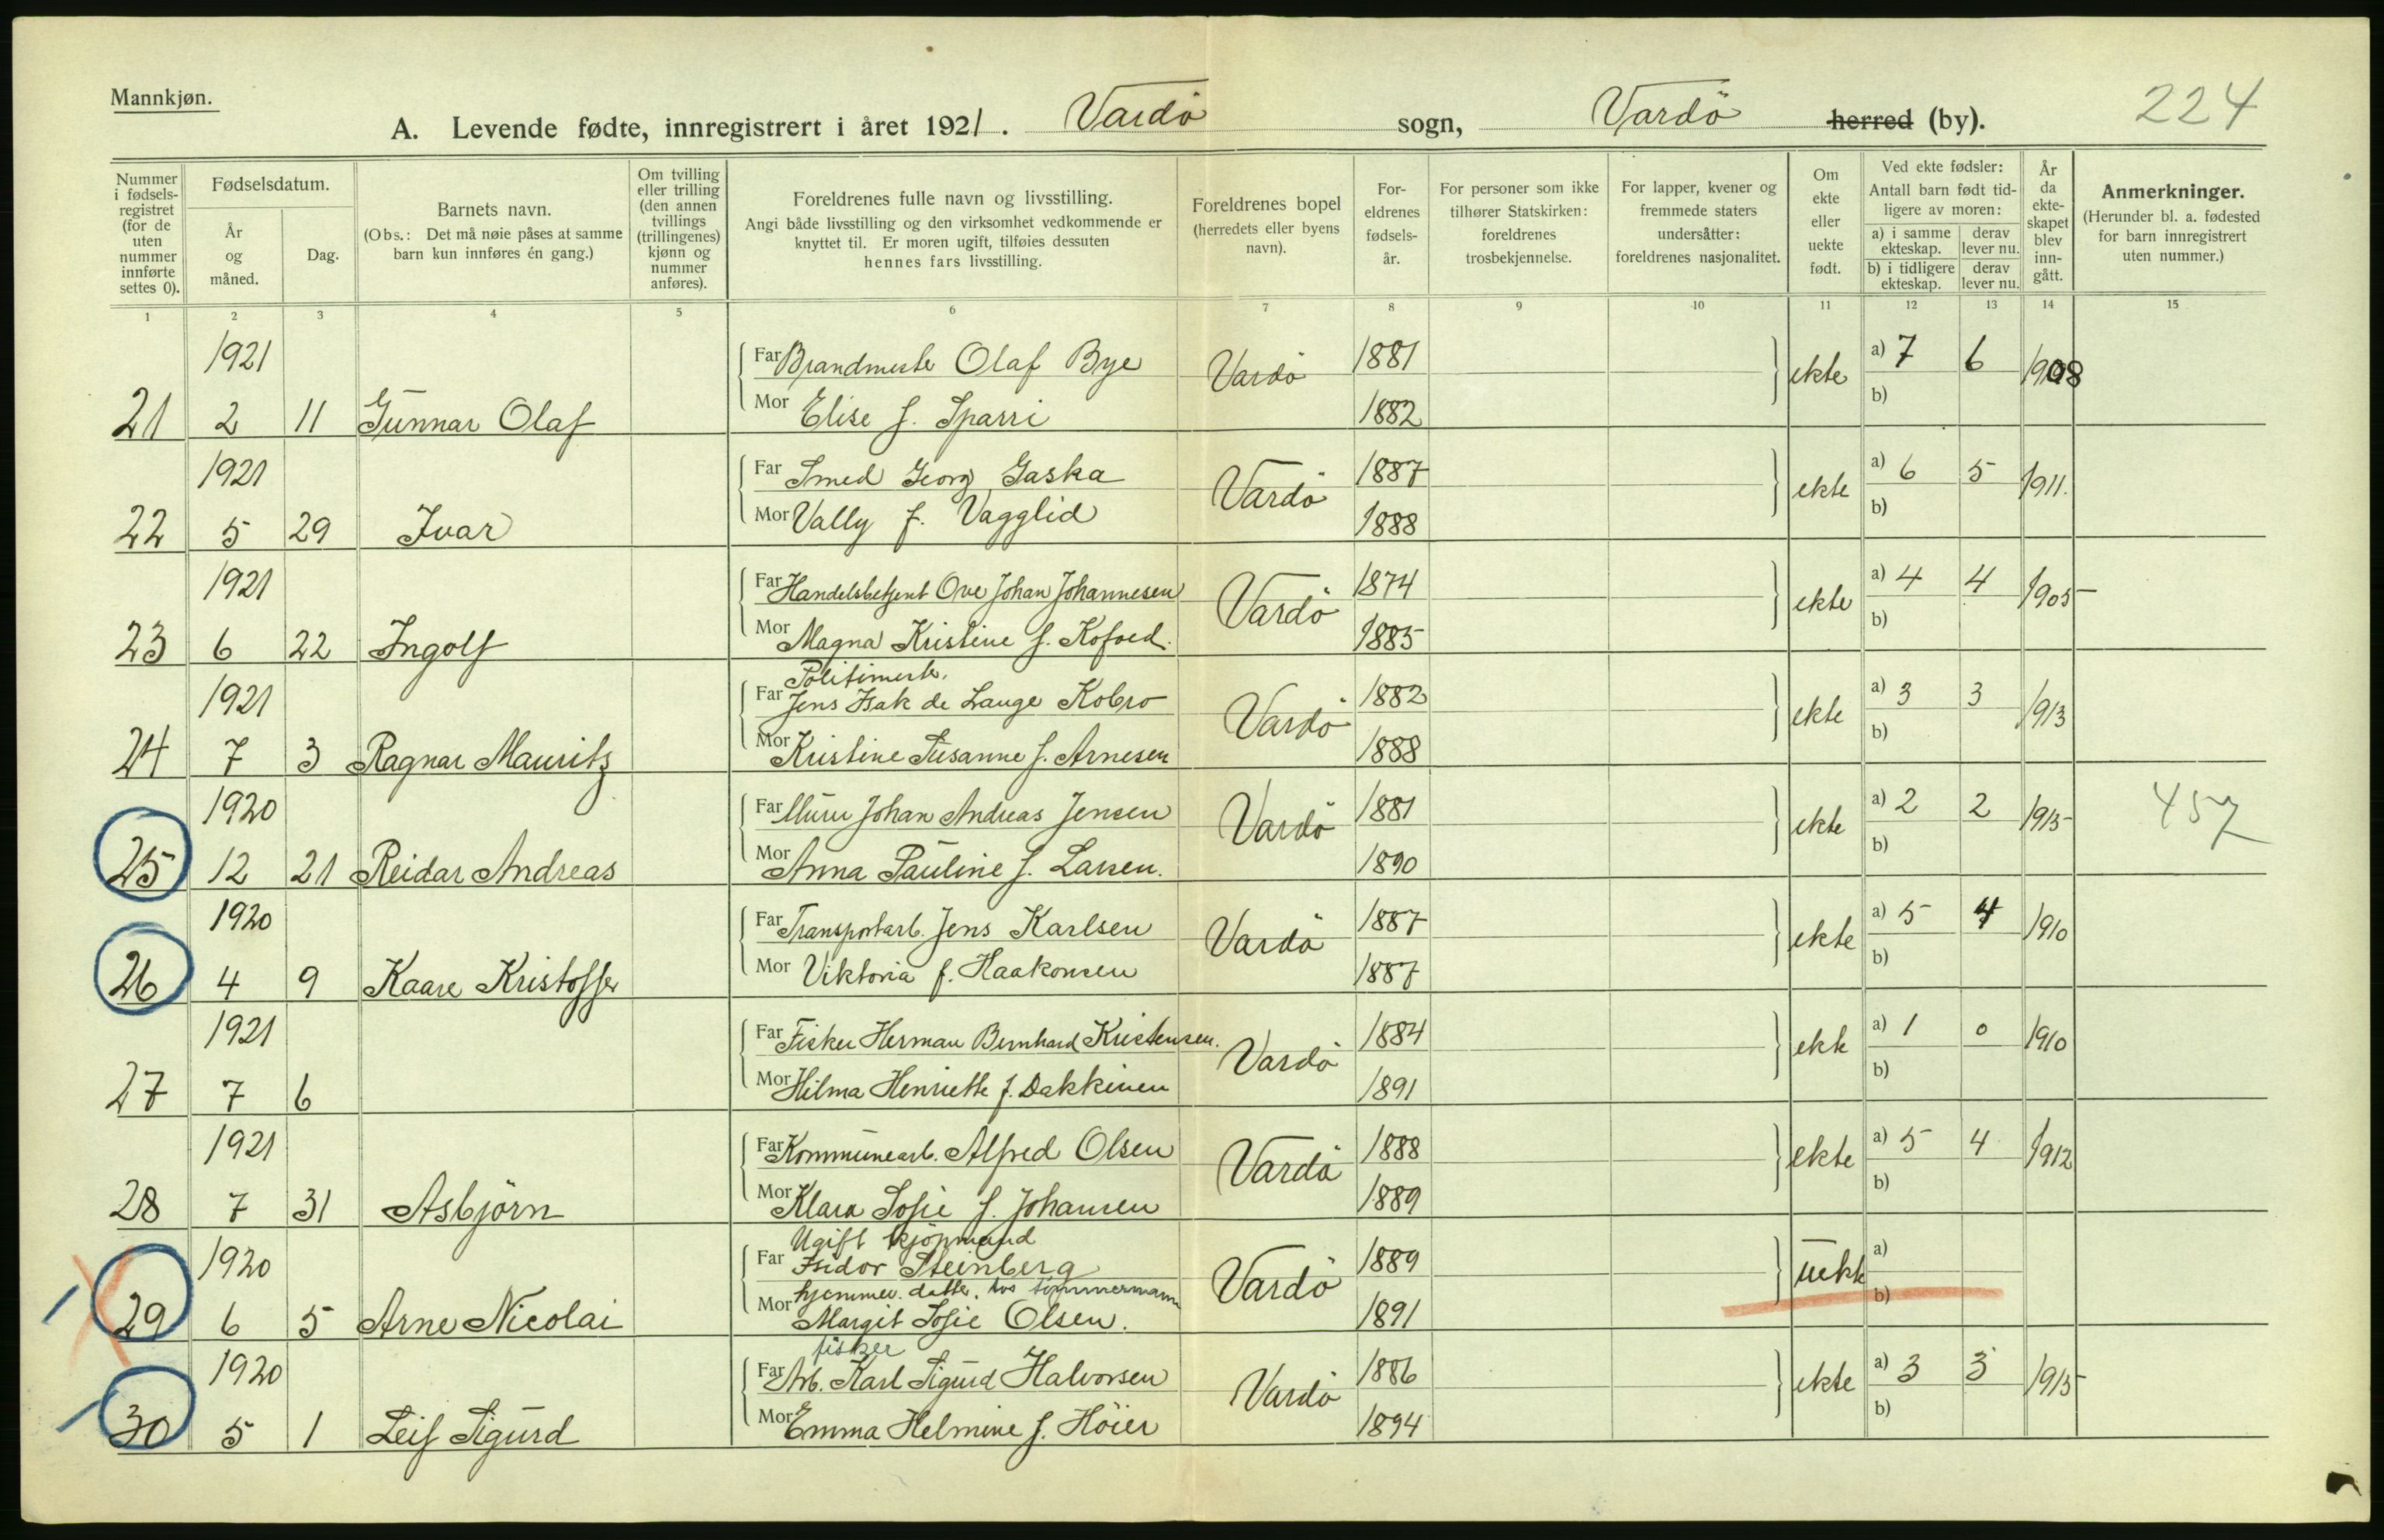 Mannkjøn.
A. Levende fødte, innregistrert i året 1921. Vardö sogn, Vardö herred (by). 224
Nummer i fødsels-registret (for de uten nummer innførte settes 0).
Fødselsdatum.
År og måned.
Dag.
Barnets navn.
(Obs.: Det må nøie påses at samme barn kun innføres én gang.)
Om tvilling eller trilling (den annen tvillings (trillingenes) kjønn og nummer anføres).
Foreldrenes fulle navn og livsstilling.
Angi både livsstilling og den virksomhet vedkommende er knyttet til. Er moren ugift, tilføies dessuten hennes fars livsstilling.
Foreldrenes bopel (herredets eller byens navn).
For-eldrenes fødsels-år.
For personer som ikke tilhører Statskirken: foreldrenes trosbekjennelse.
For lapper, kvener og fremmede staters undersåtter: foreldrenes nasjonalitet.
Om ekte eller uekte født.
Ved ekte fødsler:
Antall barn født tid-ligere av moren:
a) i samme ekteskap.
derav lever nu.
b) i tidligere ekteskap.
derav lever nu.
År da ekte-skapet blev inn-gått.
Anmerkninger.
(Herunder bl. a. fødested for barn innregistrert uten nummer.)
1 2 3 4 5 6 7 8 9 10 11 12 13 14 15
1921 Far Brandmester Olaf Bye Vardö 1881 ekte a) 7 6 1908
21 2 11 Gunnar Olaf Mor Elise f. Sparri 1882 b)
1921 Far Smed Georg Gaska Vardö 1887 ekte a) 6 5 1911.
22 5 29 Ivar Mor Vally f. Vagglid 1888 b)
1921 Far Handelsbetjent Ove Johan Johannesen Vardö 1874 ekte a) 4 4 1905
23 6 22 Ingolf Mor Magna Kristine f. Kofoed. 1885 b)
Politimest.
1921 Far Jens Isak de Lange Kobro Vardö 1882 ekte a) 3 3 1913
24 7 3 Ragnar Mauritz Mor Kristine Susanne f. Arnesen 1888 b)
1920 Far Murer Johan Andreas Jensen Vardö 1881 ekte a) 2 2 1915 457
25 12 21 Reidar Andreas Mor Anna Pauline f. Larsen. 1890 b)
1920 Far Transportarb. Jens Karlsen Vardö 1887 ekte a) 5 4 1910
26 4 9 Kaare Kristoffer Mor Viktoria f. Haakonsen 1887 b)
1921 Far Fisker Herman Bernhard Kristensen. Vardö 1884 ekte a) 1 0 1910
27 7 6 Mor Hilma Henriette f. Dakkinen 1891 b)
1921 Far Kommunearb. Alfred Olsen Vardö 1888 ekte a) 5 4 1912
28 7 31 Asbjörn Mor Klara Sofie f. Johansen 1889 b)
Ugift kjöpmand
1920 Far Isidor Steinberg Vardö 1889 uekte a)
hjemmev. datter. hos tömmermann
29 6 5 Arne Nicolai Mor Margit Sofie Olsen. 1891 b)
fisker
1920 Far Arb. Karl Sigurd Halvorsen Vardö 1886 ekte a) 3 3 1915
30 5 1 Leif Sigurd Mor Emma Helmine f. Höier 1894 b)